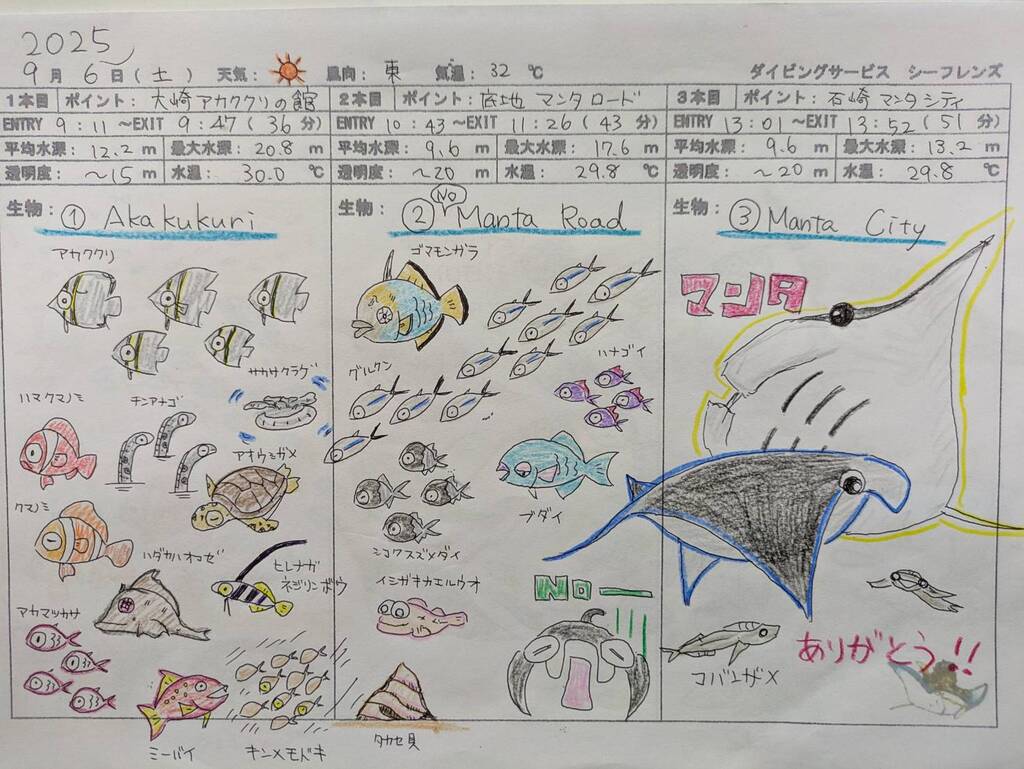 2025
9月 6日(土) 天気: 風向: 東 気温: 32 ℃ ダイビングサービス シーフレンズ
1本目 ポイント: 大崎アカククリの館
ENTRY 9:11 ～EXIT 9:47 (36 分)
平均水深: 12.2 m 最大水深: 20.8 m
透明度: ～15 m 水温: 30.0 ℃
生物: ① Akakukuri
アカククリ
サカサクラゲ
ハマクマノミ
チンアナゴ
アオウミガメ
クマノミ
ハダカハオコゼ
ヒレナガ
ネジリンボウ
アカマツカサ
ミーバイ
キンメモドキ
2本目 ポイント: 底地 マンタロード
ENTRY 10:43 ～EXIT 11:26 (43 分)
平均水深: 9.6 m 最大水深: 17.6 m
透明度: ～20 m 水温: 29.8 ℃
生物: ② No Manta Road
ゴマモンガラ
グルクン
ハナゴイ
ブダイ
シコクスズメダイ
イシガキカエルウオ
No
タカセ貝
3本目 ポイント: 石崎 マンタシティ
ENTRY 13:01 ～EXIT 13:52 (51 分)
平均水深: 9.6 m 最大水深: 13.2 m
透明度: ～20 m 水温: 29.8 ℃
生物: ③ Manta City
マンタ
コバンザメ
ありがとう!!